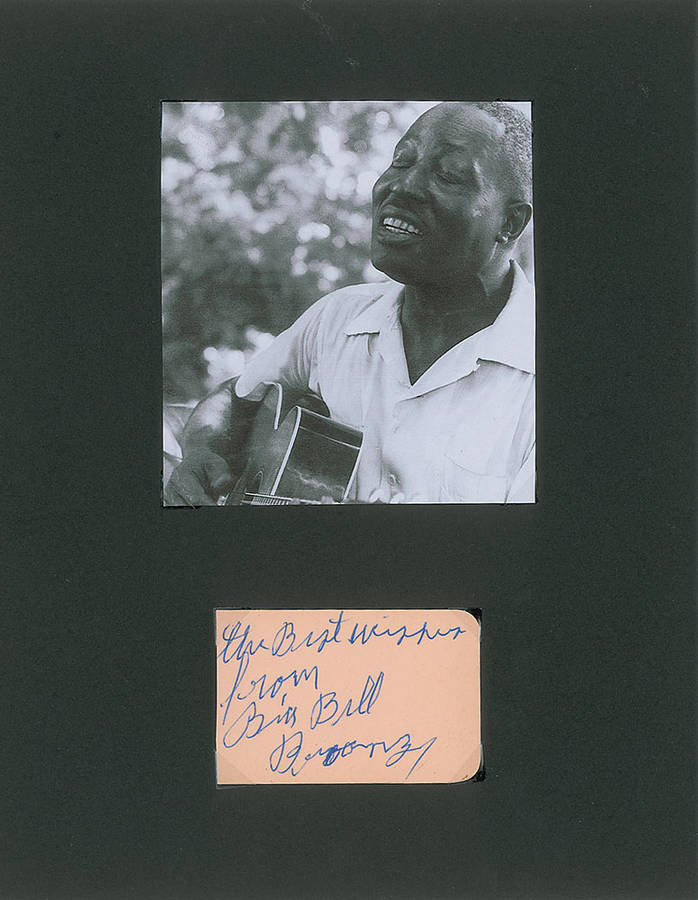 the Best wishes
from
Big Bill
Broonzy